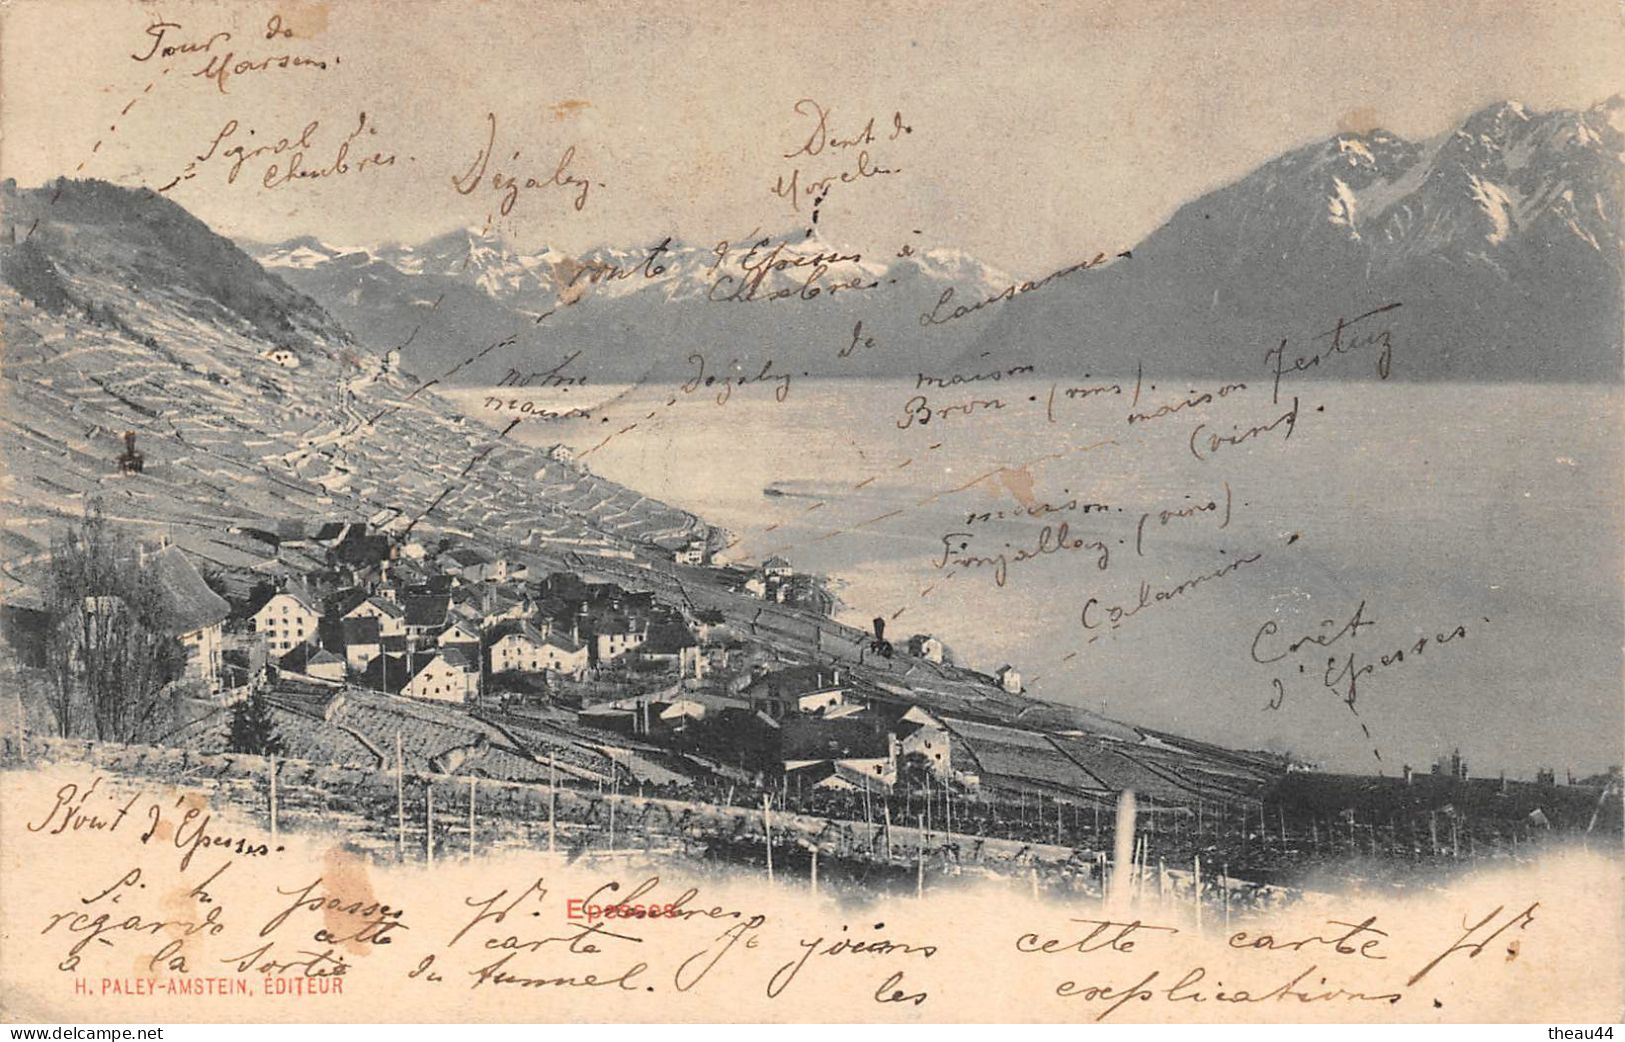 Tour de
Marsens.
Signal de
Chexbres.
Dézaley.
Dent de
Morcles.
route d'Epesses à
Chexbres.
Dézaley. de Lausanne.
notre
maison.
maison
Bron. (vins).
maison Testuz
(vins).
maison.
Fonjallaz. (vins).
Calamin.
Crêt
d'Epesses.
d'Epesses.
Si tu passes pr. Chexbres,
regarde cette carte
à la sortie du tunnel.
Je joins cette carte pr.
les explications.
Epesses
H. PALEY-AMSTEIN, ÉDITEUR
theau44